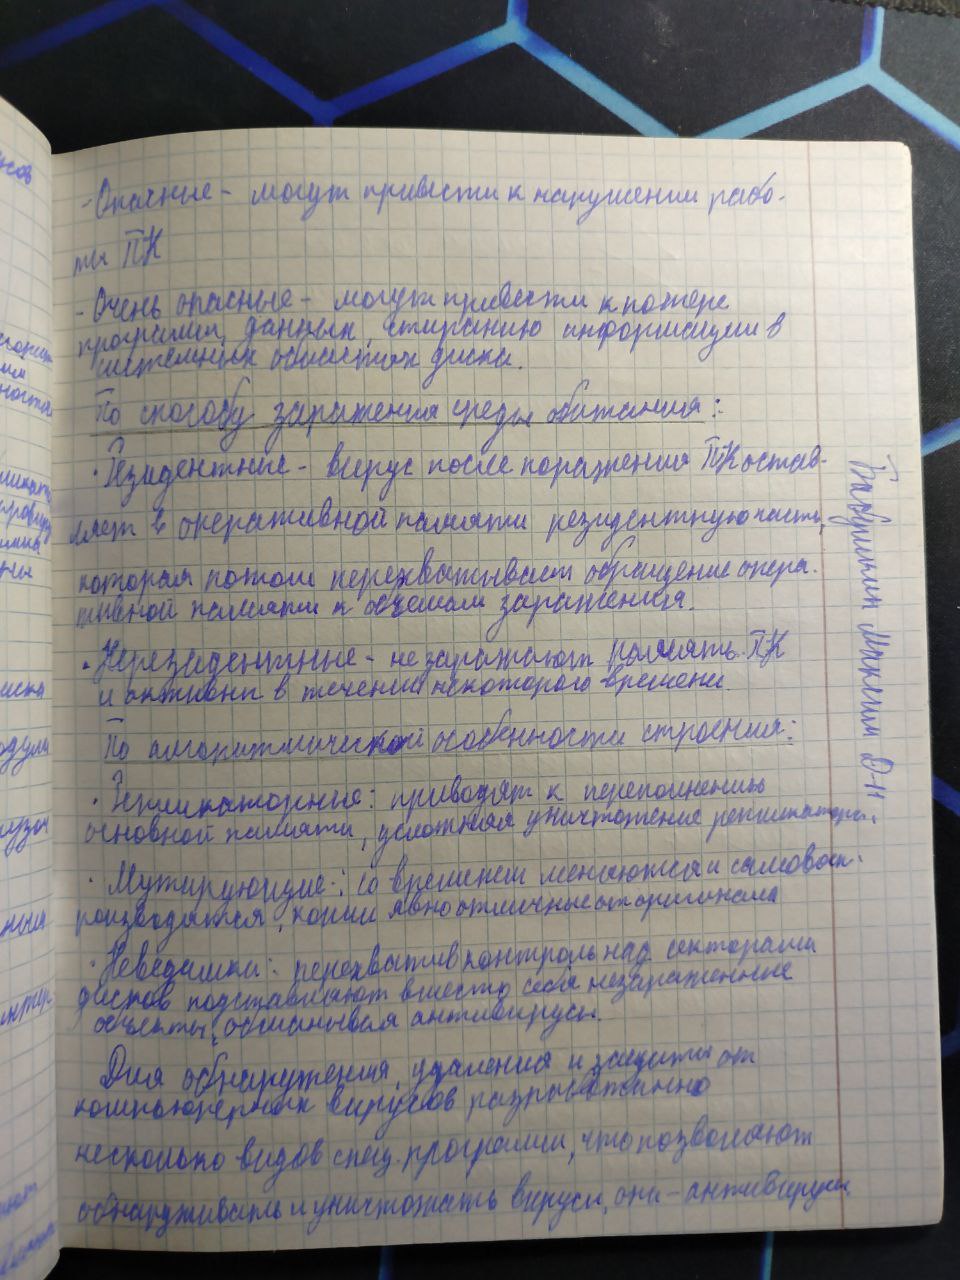 - Опасные - могут привести к нарушении рабо-
ты ПК
- Очень опасные - могут привести к потере
программ, данных, стиранию информации в
системных областях диска.
По способу заражения среды обитания:
· Резидентные - вирус после поражения ПК остав-
ляет в оперативной памяти резидентную часть,
которая потом перехватывает обращение опера-
тивной памяти к объемам заражения.
· Нерезидентные - не заражают память ПК
и активны в течении некоторого времени.
По алгоритмической особенности строения:
· Репликаторные: приводят к переполнению
основной памяти, усложняя уничтожение репликатора.
· Мутирующие: со временем меняются и самовосп-
роизводятся, копии явно отличные от оригинала
· Неведимки: перехватив контроль над секторами
дисков подставляют вместо себя незараженные
объекты, обманывая антивирусы.
Для обнаружения, удаления и защиты от
компьютерных вирусов разработанно
несколько видов спец. программ, что позволяют
обнаруживать и уничтожать вирусы, они - антивирусы.
Максим